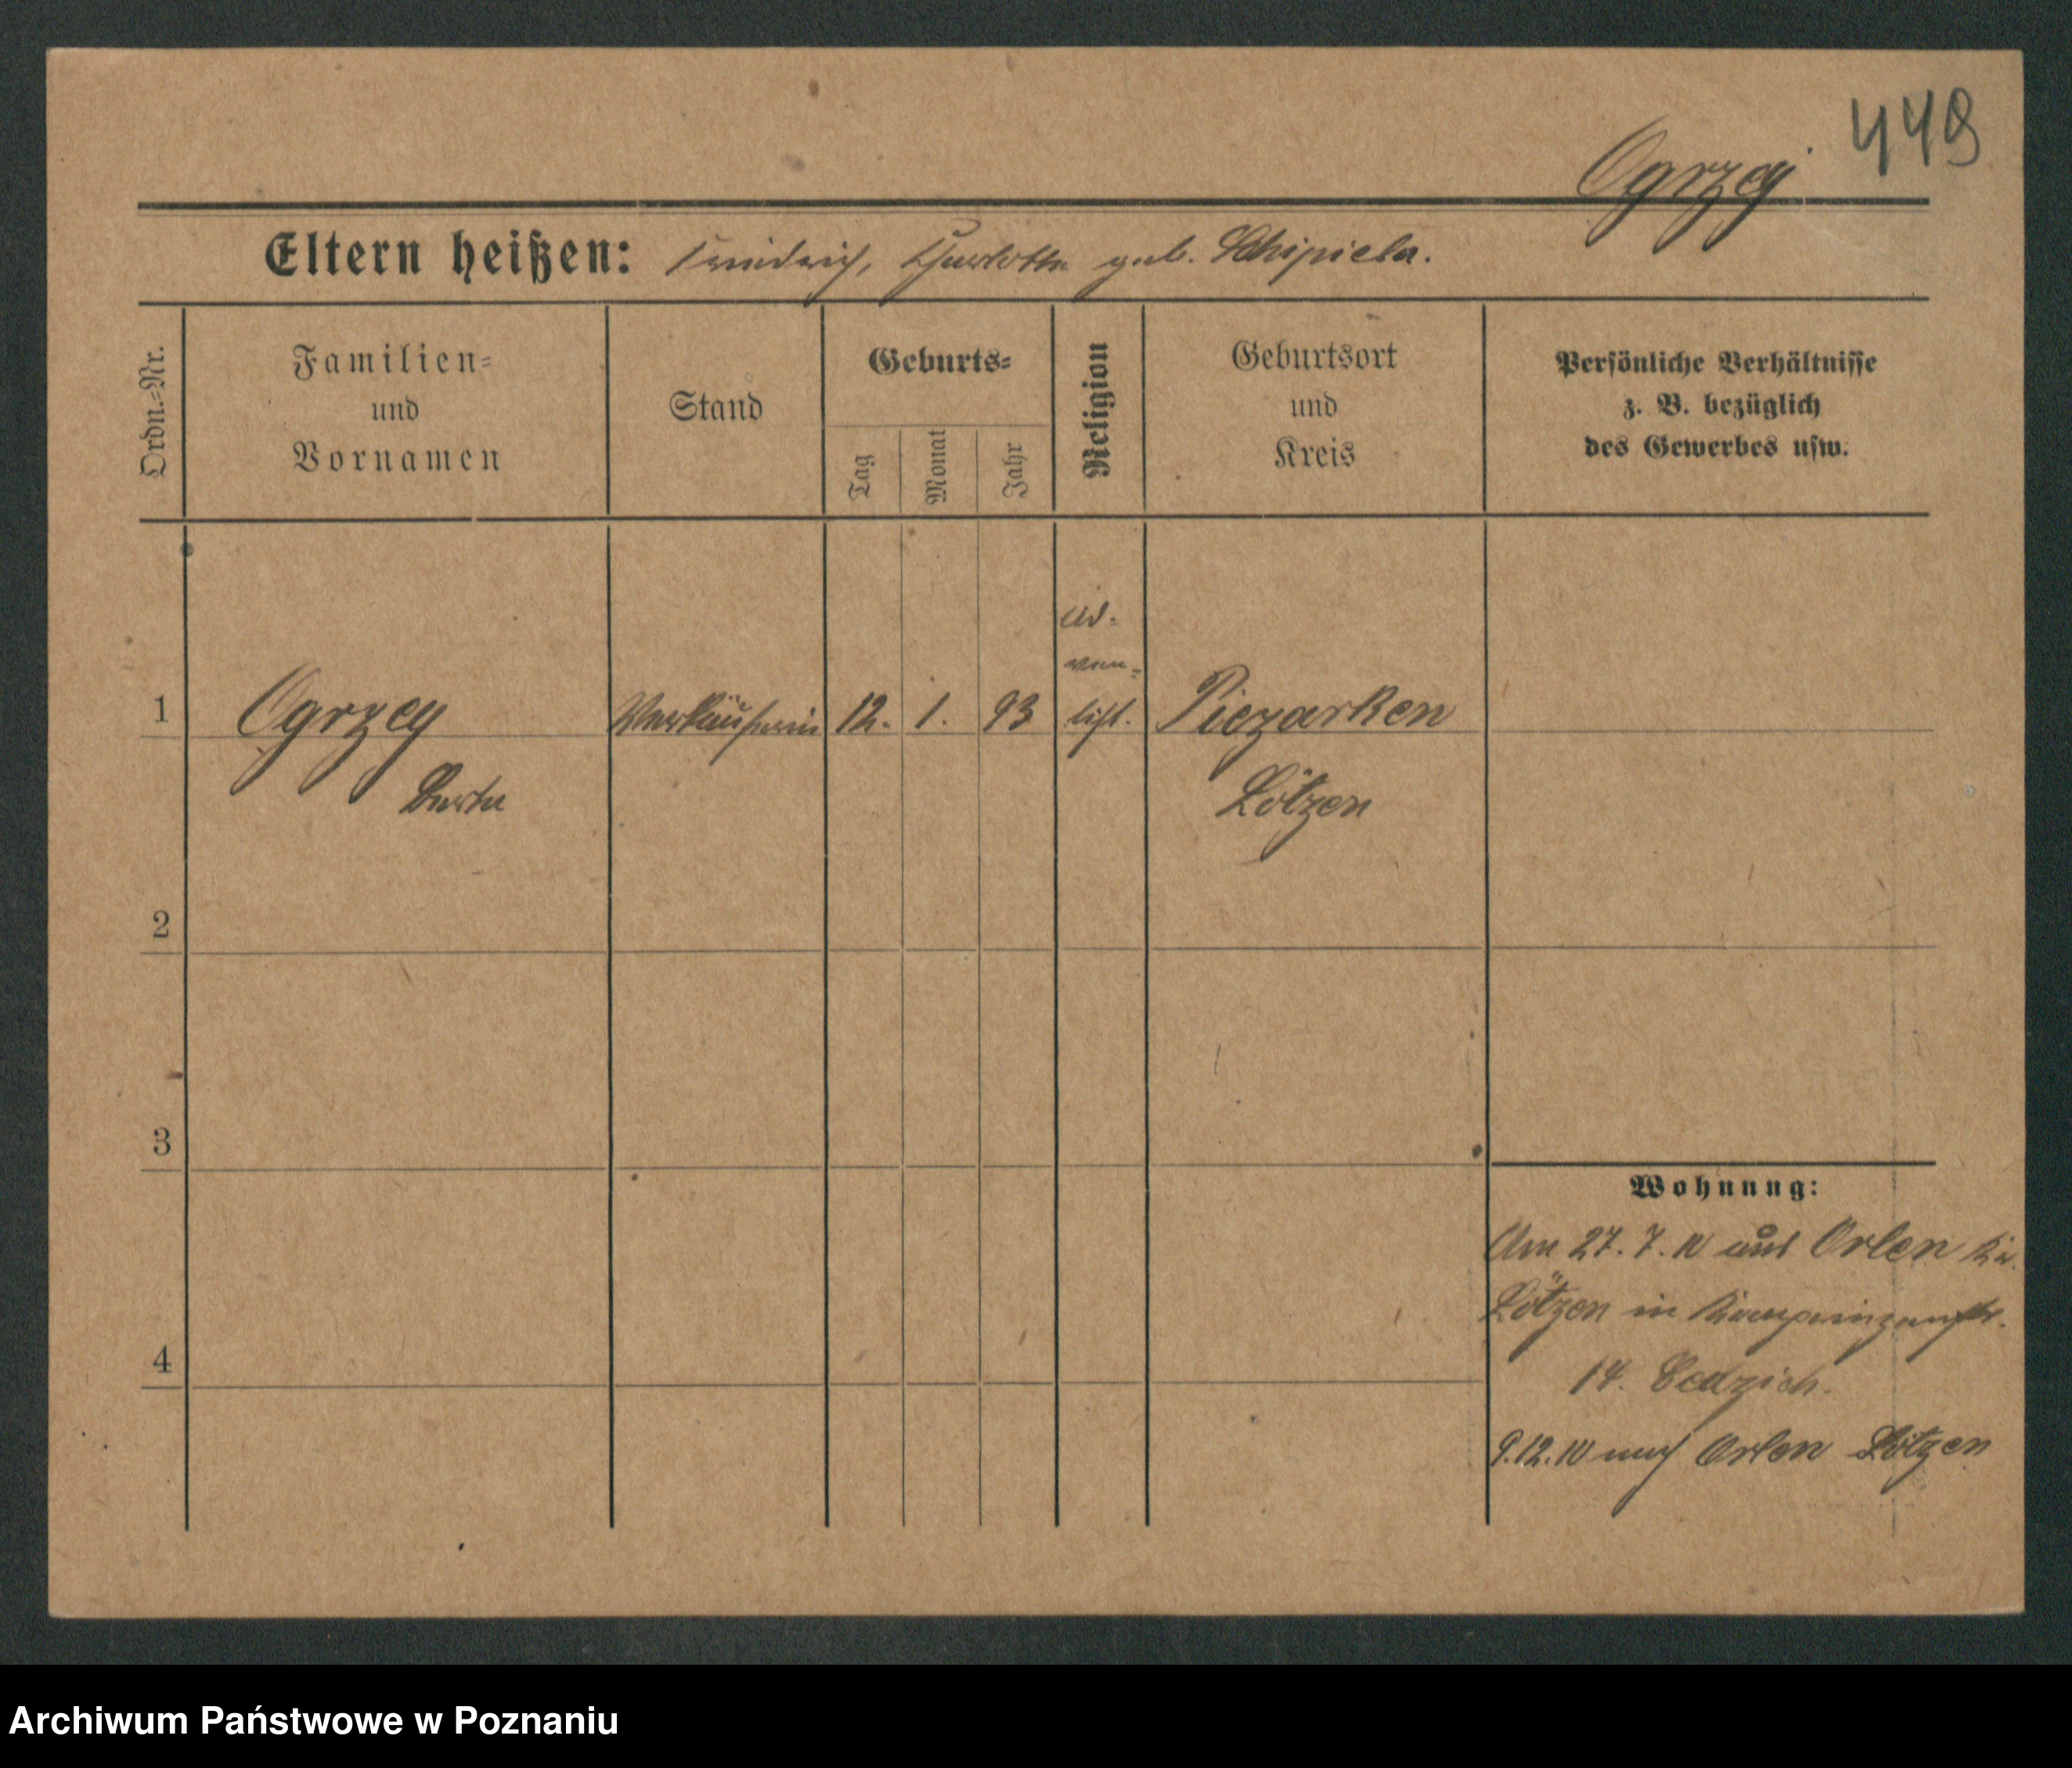 449
Ogrzey
Eltern heißen: Friedrich, Charlotte geb. Schipiela.
Ordn.-Nr.
Familien-
und
Vornamen
Stand
Geburts-
Tag
Monat
Jahr
Religion
Geburtsort
und
Kreis
Persönliche Verhältnisse
z. B. bezüglich
des Gewerbes usw.
1
Ogrzey
Berta
Verkäuferin
12.
1.
93
Piezarken
Lötzen
2
3
4
Wohnung:
Am 27. 7. 10 aus Orlen Kr.
Lötzen in Kronprinzenstr.
14.
9.12.10 nach Orlen Lötzen
Archiwum Państwowe w Poznaniu